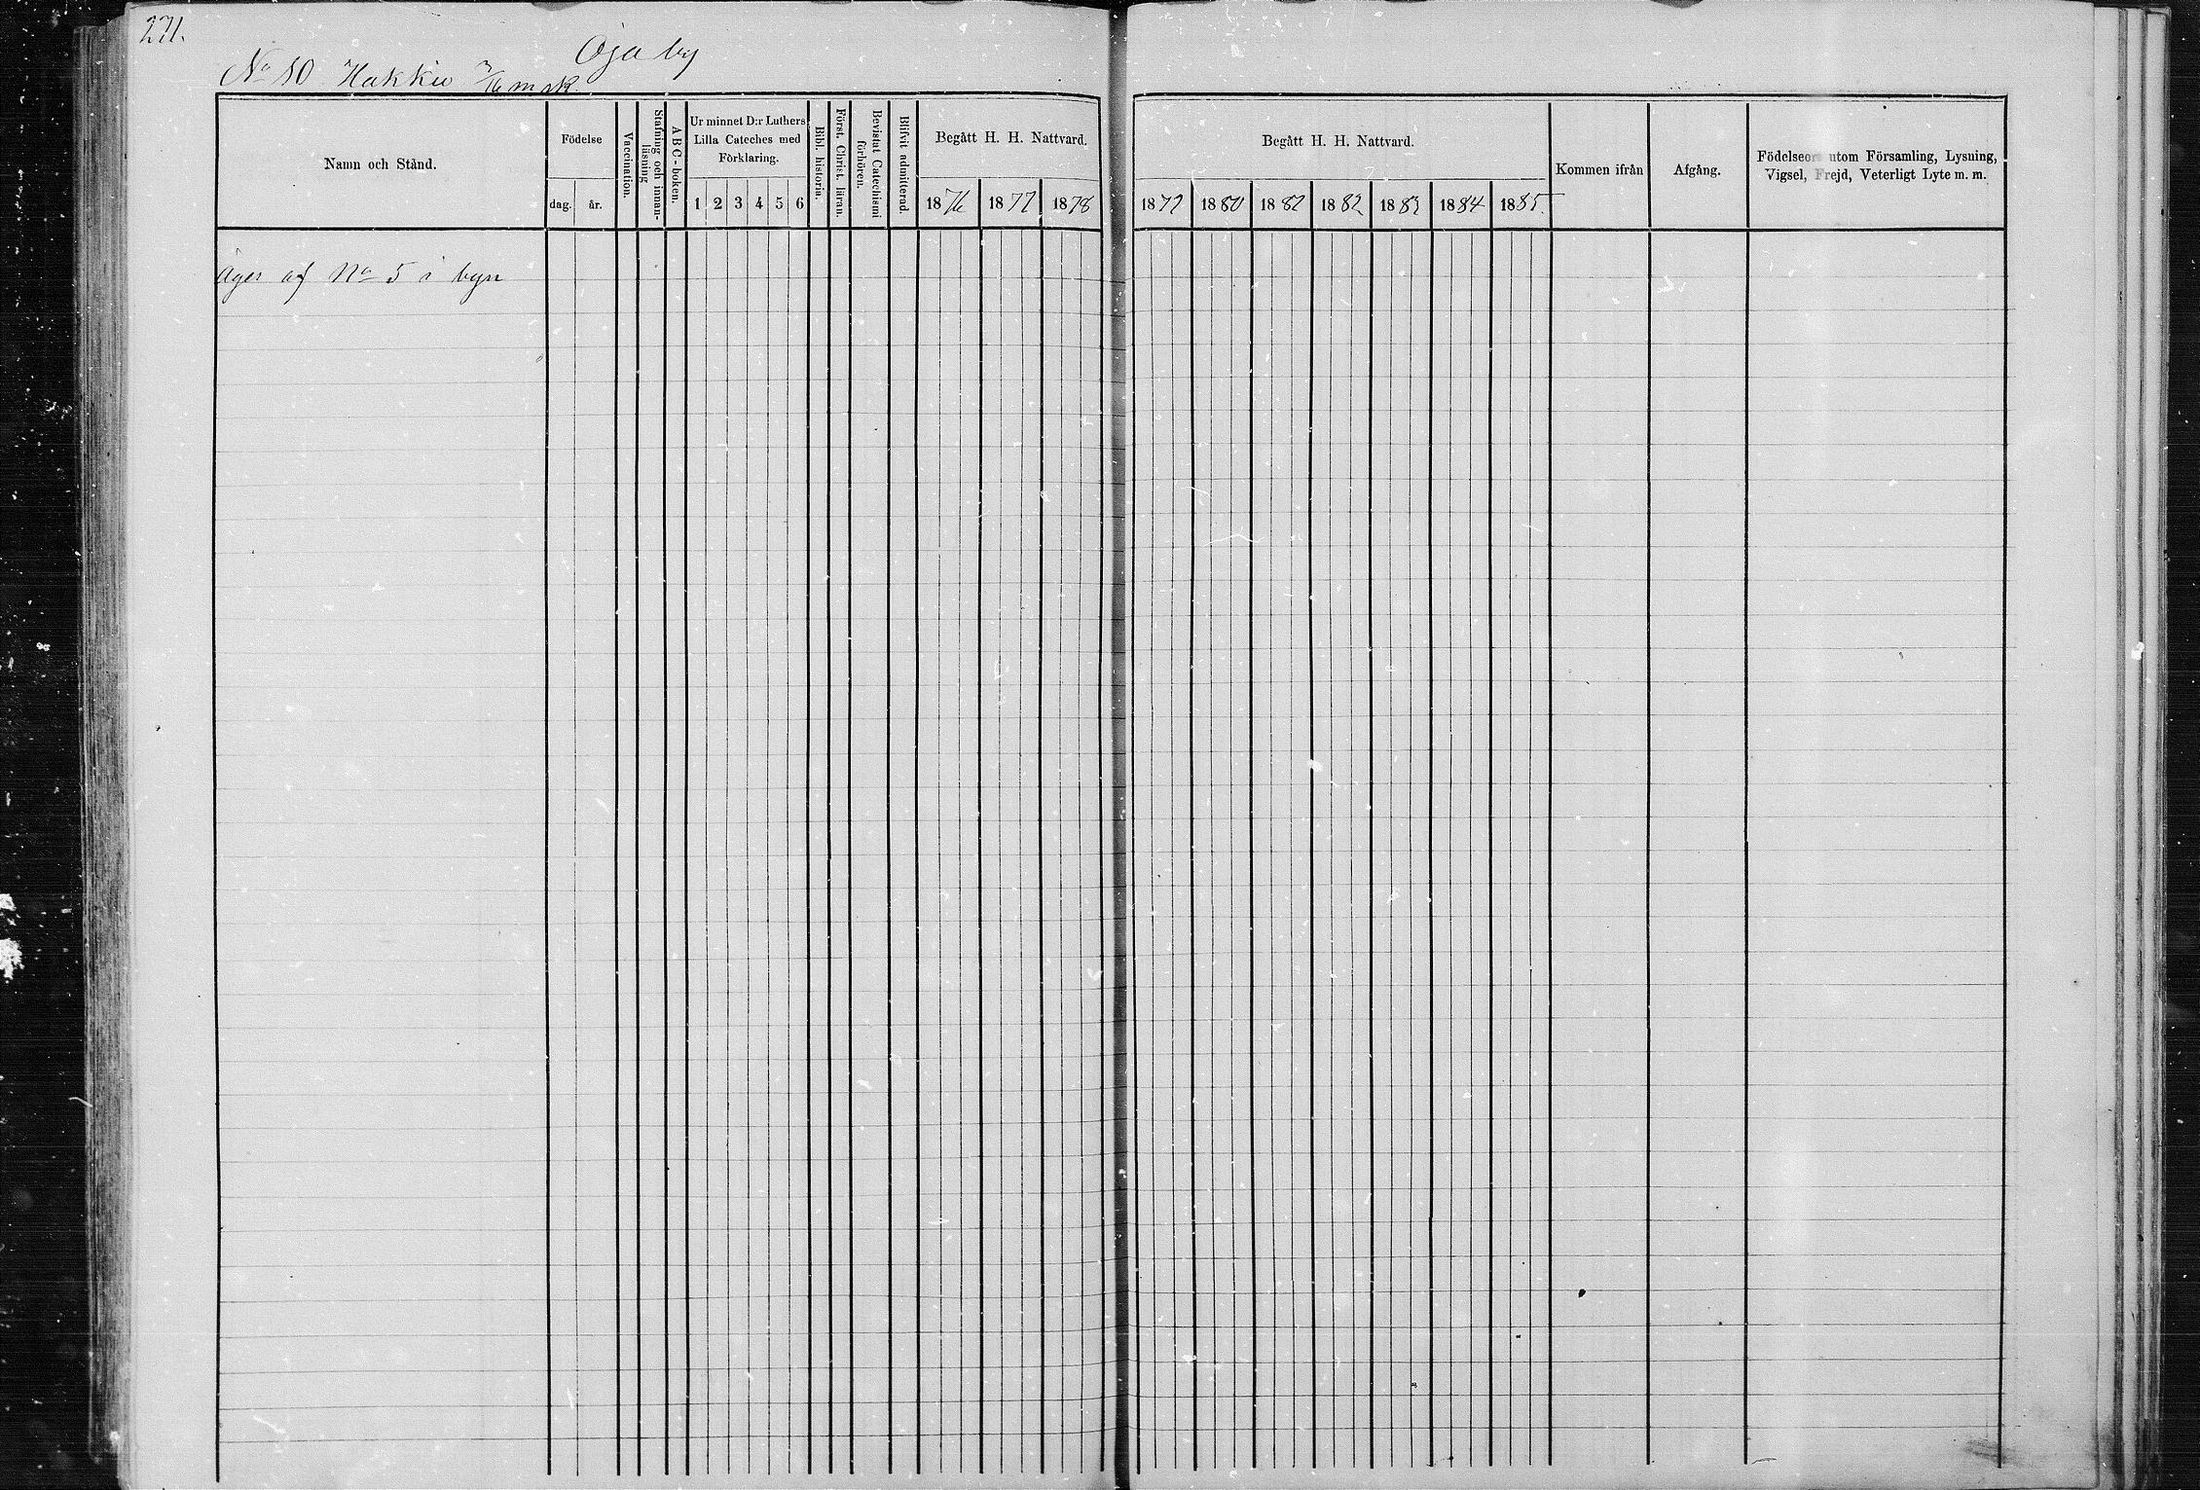 271.
Oja by
No 10 Hakkio 7/16 msk.
Namn och Stånd.
Födelse
dag. år.
Vaccination.
Stafning och innan-läsning
ABC-boken.
Ur minnet D:r Luthers
Lilla Cateches med
Förklaring.
1 2 3 4 5 6
Bibl. historia.
Först. Christ. läran.
Bevistat Catechismi förhören.
Blifvit admitterad.
Begått H. H. Nattvard.
1876 1877 1878
Begått H. H. Nattvard.
1879 1880 1881 1882 1883 1884 1885.
Kommen ifrån
Afgång.
Födelseort utom Församling, Lysning,
Vigsel, Frejd, Veterligt Lyte m. m.
Äges af No 5 i byn